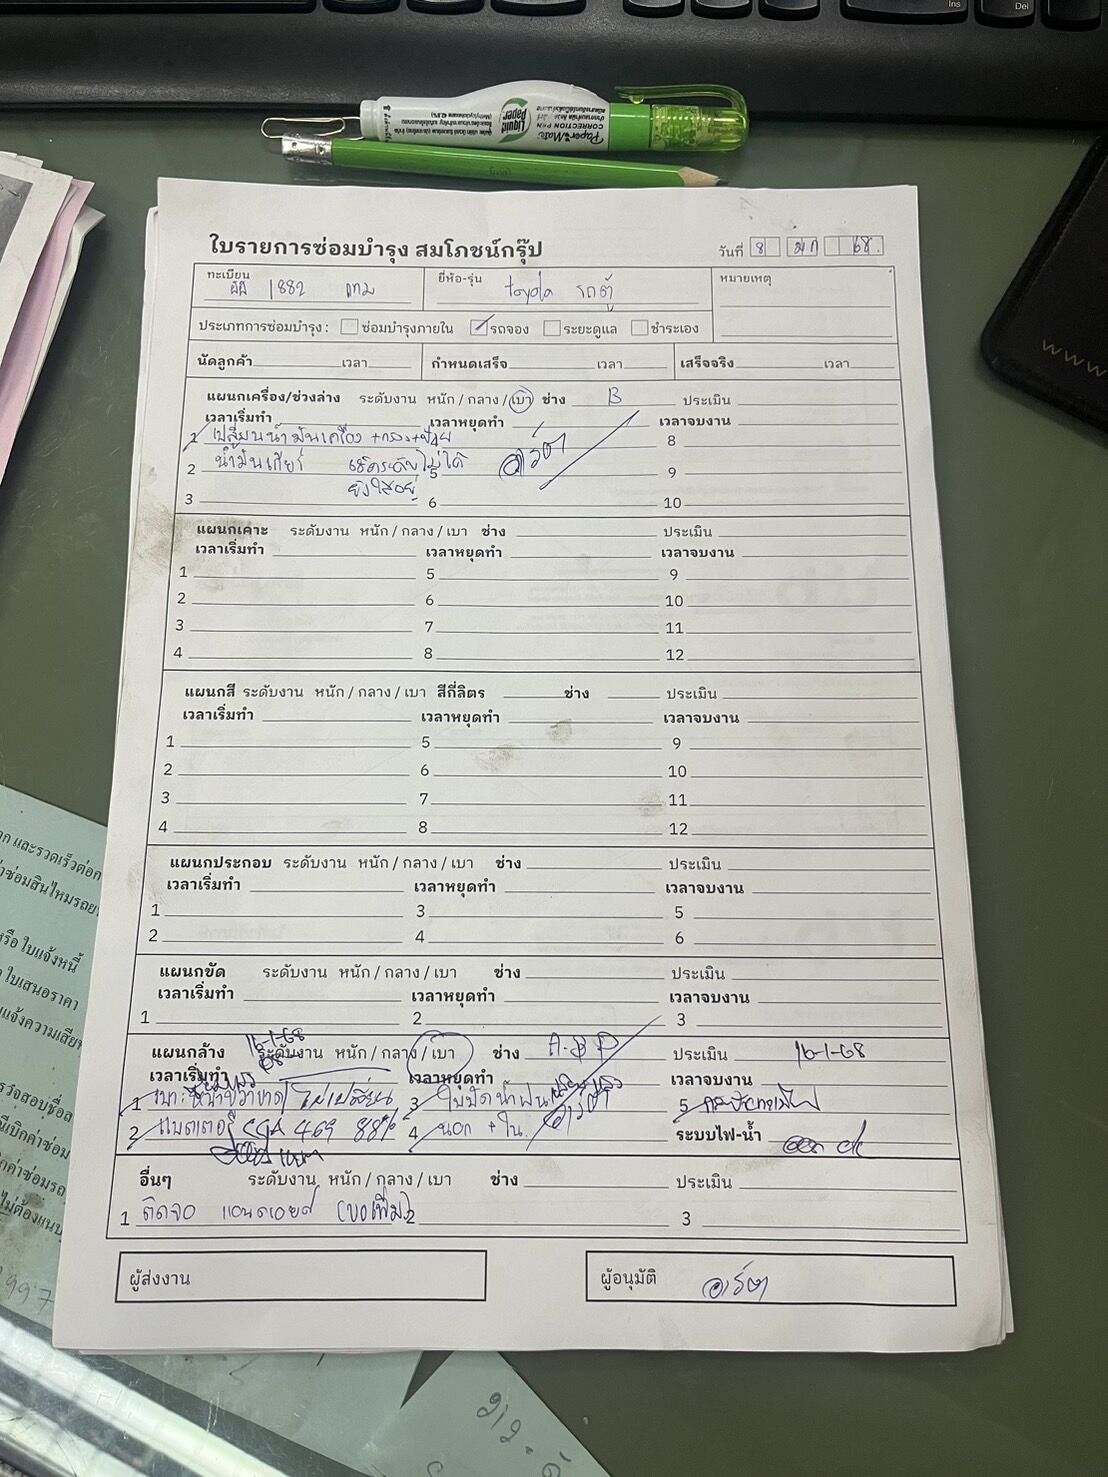 Ins
Del
Paper Mate
CORRECTION PEN
Liquid Paper
ใบรายการซ่อมบำรุง สมโภชน์กรุ๊ป
วันที่ 8 มก 68.
ทะเบียน 1882 กทม
ยี่ห้อ-รุ่น toyota รถตู้
หมายเหตุ
ประเภทการซ่อมบำรุง : ซ่อมบำรุงภายใน รถจอง ระยะดูแล ชำระเอง
นัดลูกค้า เวลา กำหนดเสร็จ เวลา เสร็จจริง เวลา
แผนกเครื่อง/ช่วงล่าง ระดับงาน หนัก / กลาง / เบา ช่าง B ประเมิน
เวลาเริ่มทำ เวลาหยุดทำ เวลาจบงาน
1 เปลี่ยนน้ำมันเครื่อง +กรอง 4 8
2 น้ำมันเกียร์ เช็คระดับไม่ได้ 5 9
3 ยังใสอยู่ 6 10
อาร์ต
แผนกเคาะ ระดับงาน หนัก / กลาง / เบา ช่าง ประเมิน
เวลาเริ่มทำ เวลาหยุดทำ เวลาจบงาน
1 5 9
2 6 10
3 7 11
4 8 12
แผนกสี ระดับงาน หนัก / กลาง / เบา สีกี่ลิตร ช่าง ประเมิน
เวลาเริ่มทำ เวลาหยุดทำ เวลาจบงาน
1 5 9
2 6 10
3 7 11
4 8 12
แผนกประกอบ ระดับงาน หนัก / กลาง / เบา ช่าง ประเมิน
เวลาเริ่มทำ เวลาหยุดทำ เวลาจบงาน
1 3 5
2 4 6
แผนกขัด ระดับงาน หนัก / กลาง / เบา ช่าง ประเมิน
เวลาเริ่มทำ เวลาหยุดทำ เวลาจบงาน
1 2 3
16-1-68
แผนกล้าง ระดับงาน หนัก / กลาง / เบา ช่าง ประเมิน 16-1-68
เวลาเริ่มทำ เวลาหยุดทำ เวลาจบงาน
1 3 ใบปัดน้ำฝน 5
2 แบตเตอรี่ CCA 469 88% 4 นอก + ใน อาร์ต ระบบไฟ-น้ำ ok
อื่นๆ ระดับงาน หนัก / กลาง / เบา ช่าง ประเมิน
1 ติดจอ แอนดรอยด์ 2 3
ผู้ส่งงาน
ผู้อนุมัติ อาร์ต